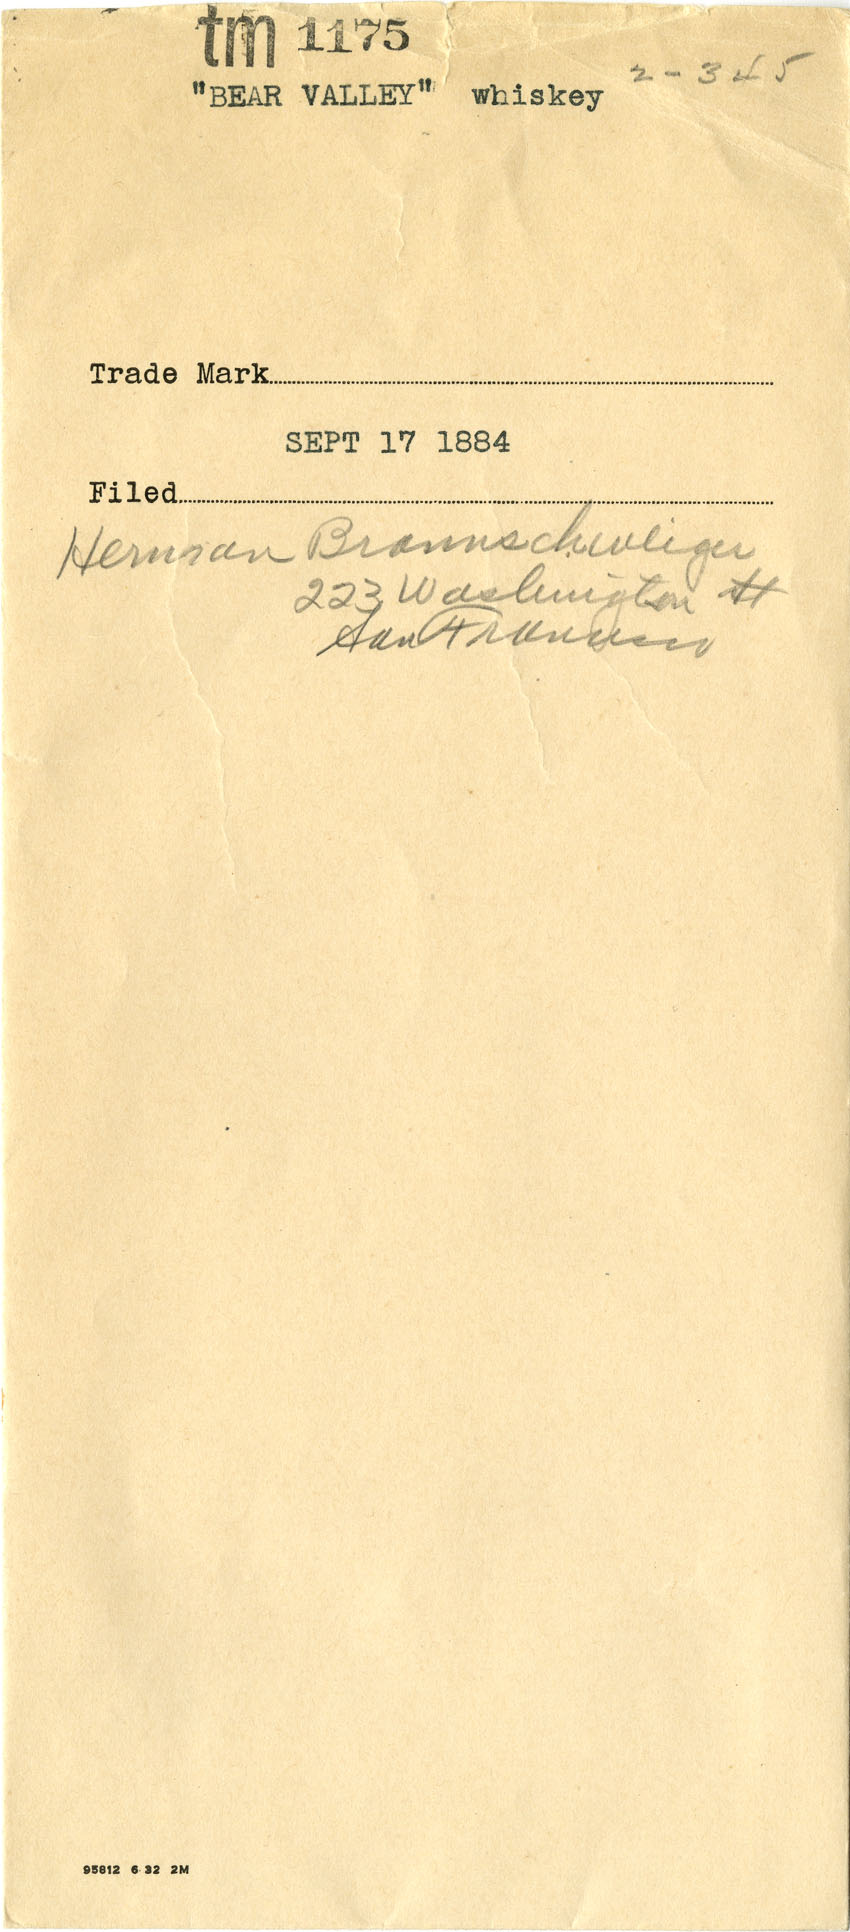 tm 1175
2-345
"BEAR VALLEY" whiskey
Trade Mark
SEPT 17 1884
Filed
Herman Braunschweiger
223 Washington St
San Francisco
95812 6 32 2M